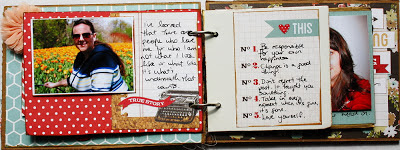 I've learned
that there are
people who love
me for who I am
not what I look
like or what size
it's what's
underneath that
counts.
TRUE STORY
THIS
Nº 1. Be responsible
for your own
happiness.
Nº 2. Change is a good
thing.
Nº 3. Don't regret the
past. It taught you
something.
Nº 4. Take in every
moment when it's fun,
it's fun.
Nº 5. Love yourself.